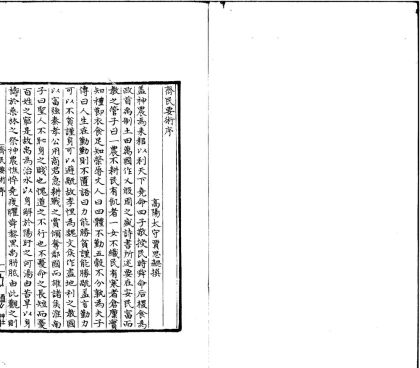 齊民要術序
高陽太守賈思勰撰
蓋神農為耒耜以利天下堯命四子敬授民時舜命后稷食為
政首禹制土田萬國作乂殷周之盛詩書所述要在安民富而
教之管子曰一農不耕民有飢者一女不織民有寒者倉廩實
知禮節衣食足知榮辱丈人曰四體不勤五穀不分孰為夫子
傳曰人生在勤勤則不匱語曰力能勝貧謹能勝禍蓋言勤力
可以不貧謹身可以避禍故李悝為魏文侯作盡地利之教國
以富強秦孝公用商君急耕戰之賞傾奪鄰國而雄諸侯淮南
子曰聖人不恥身之賤也愧道之不行也不憂命之長短而憂
百姓之窮是故禹為治水以身解於陽盱之河湯由苦旱以身
禱於桑林之祭神農憔悴堯瘦癯舜黎黑禹胼胝由此觀之則
齊民要術序